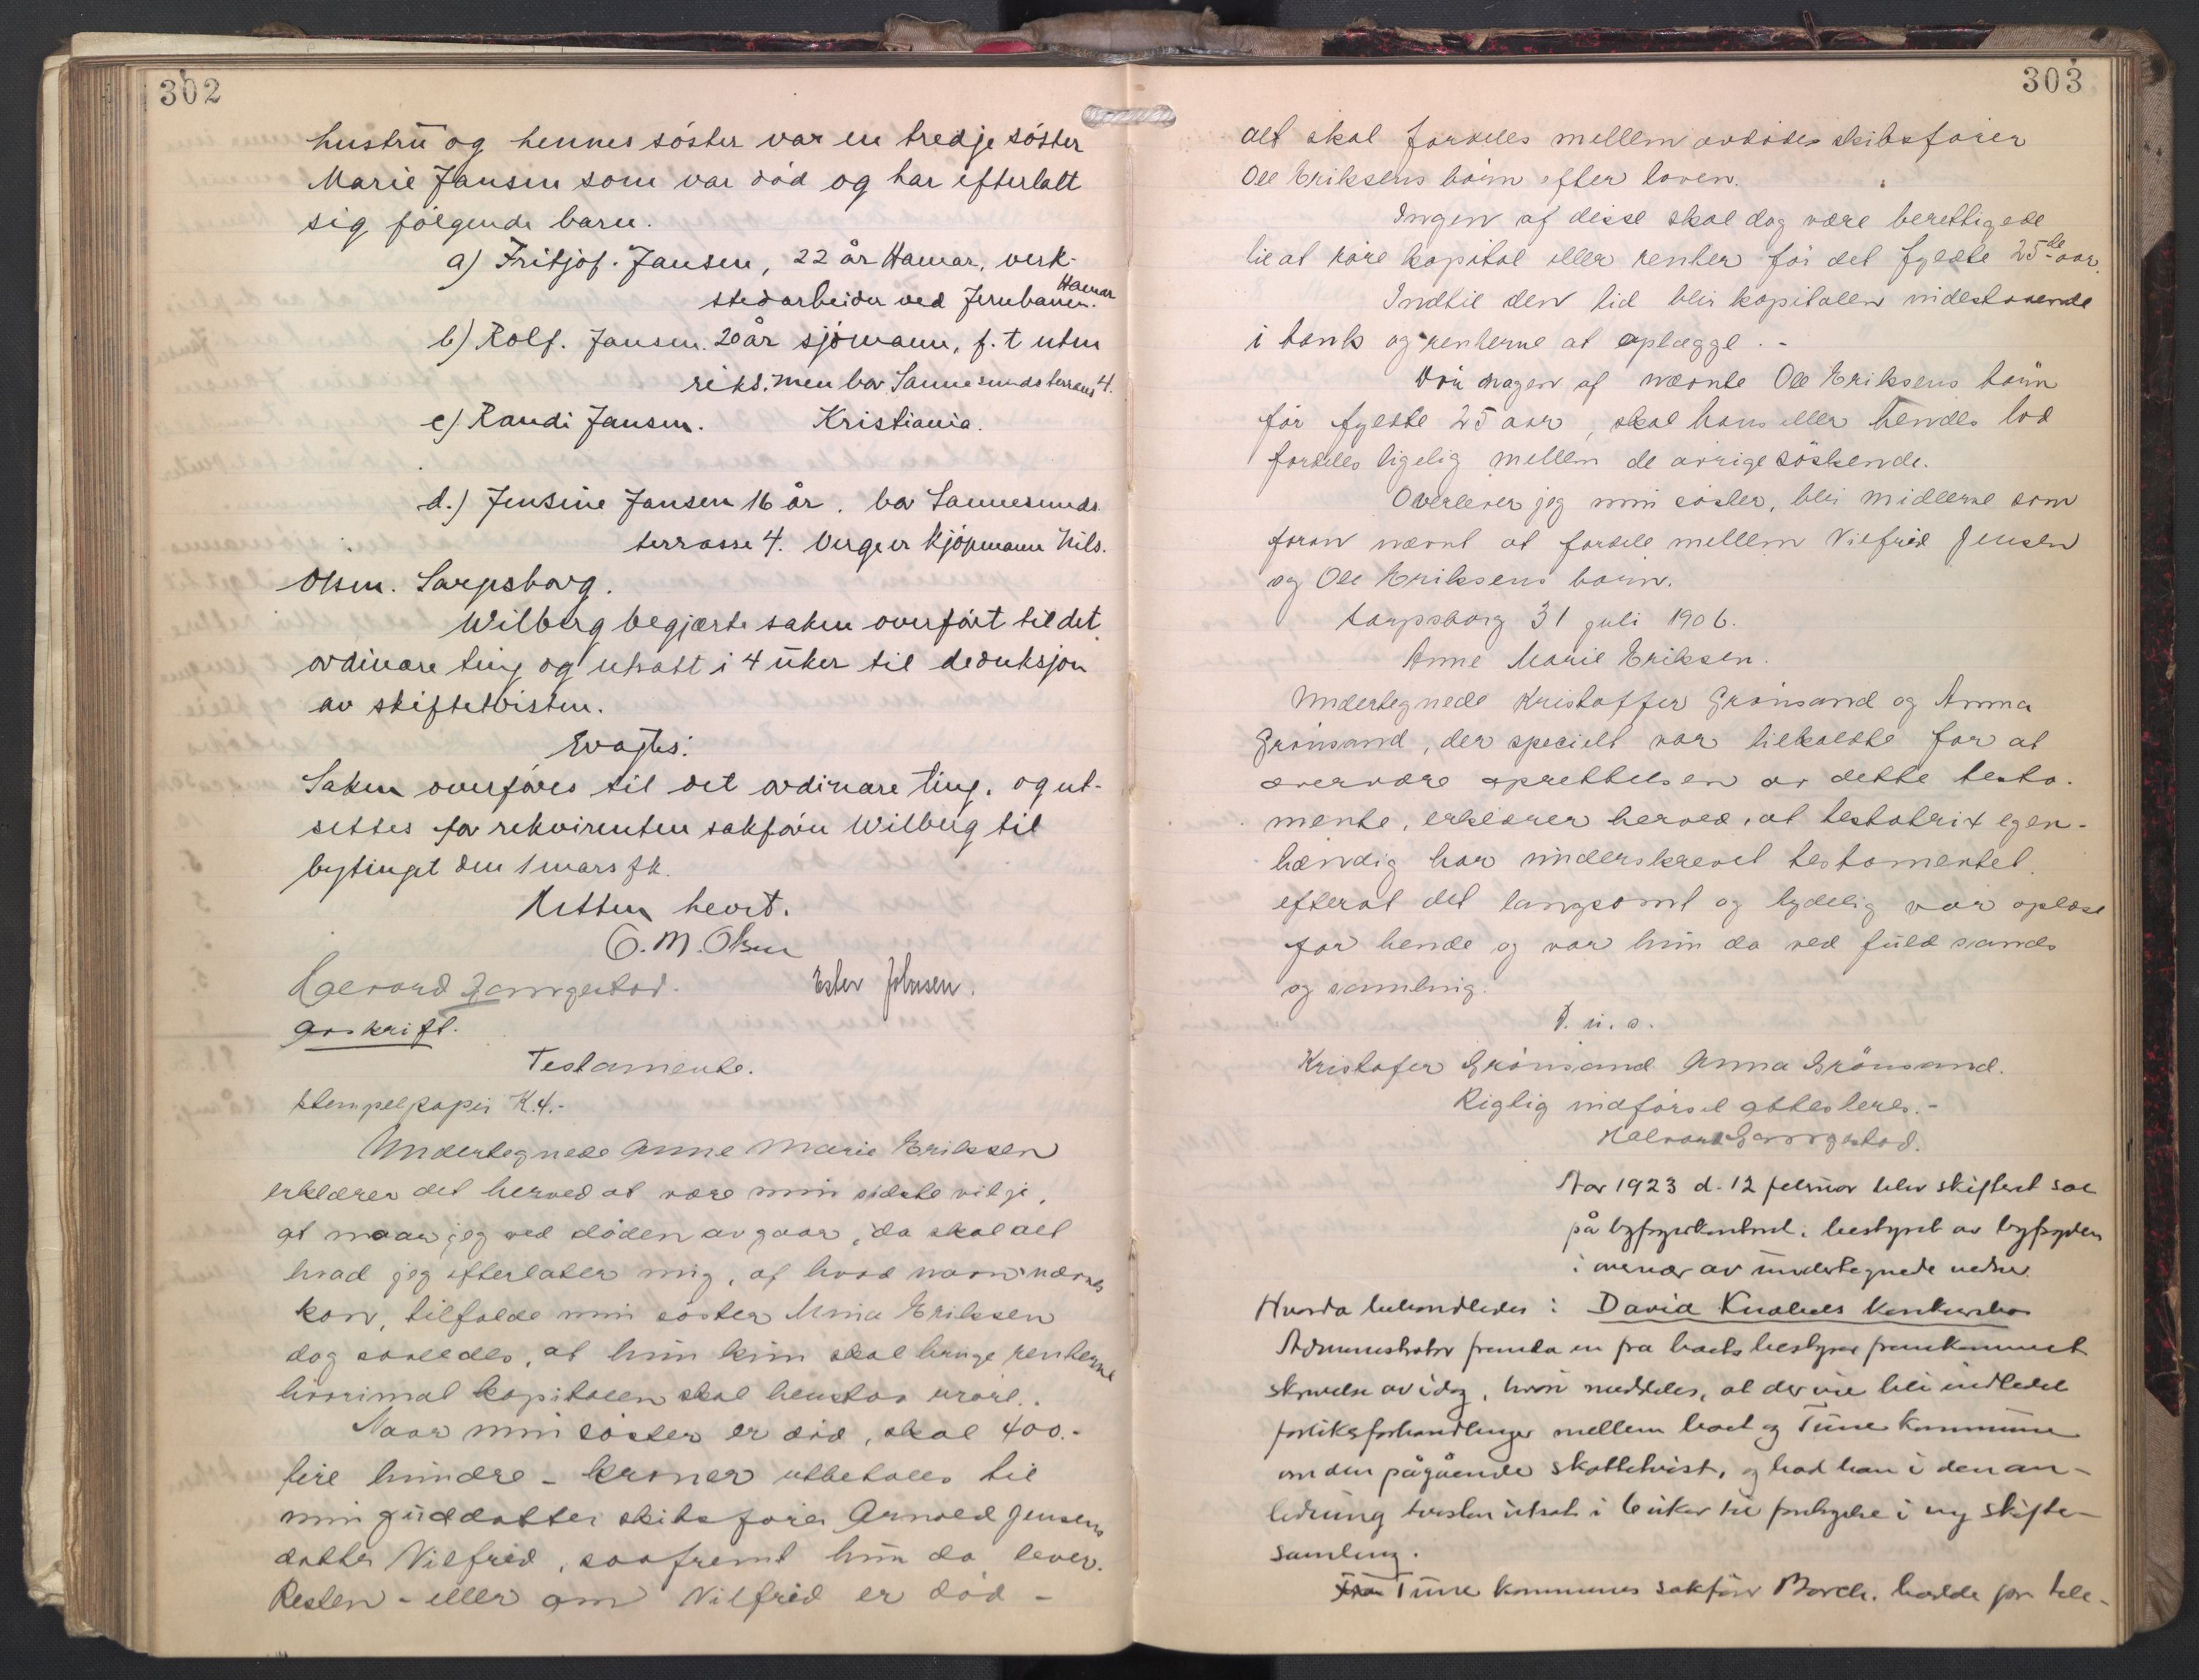 302
hustru og hennes søster var en tredje søster
Marie Jansen som var død og har efterlatt
sig følgende barn.
a) Fritjof. Jansen, 22 år Hamar, verk-
stedarbeider ved Jernbanen. Hamar
b) Rolf. Jansen. 20 år sjømann, f. t uten
riks. men bor Sannesundsterrass 4.
c) Randi Jansen. Kristiania.
d.) Jensine Jansen 16 år. bor Sannesunds
terrasse 4. Verge er kjøpmann Nils.
Olsen. Sarpsborg.
Wilberg begjærte saken overført til det
ordinære ting og utsatt i 4 uker til deduksjon
av skiftetvisten.
Eragtes:
Saken overføres til det ordinære ting. og ut-
settes for rekvirenten sakfører Wilberg til
bytinget den 1 mars fk.
Retten hevet.
O. M. Olsen
Halvord Ester Johnsen.
Avskrift.
Testamente.
Stempelpapir K.4.-
Undertegnede Anne Marie Eriksen
erklærer det herved at være min sidste vilje,
at naar jeg ved døden avgaar, da skal alt
hvad jeg efterlater mig, af hvad navn nævnes
kan, tilfalde min søster Mina Eriksen
dog saaledes, at hun kun skal bruge renterne
hvorimot kapitalen skal henstaa urørt.
Naar min søster er død, skal 400.-
fire hundre - kroner utbetales til
min guddatter skibsfører Arnold Jensens
datter Vilfrid, saafremt hun da lever.
Resten - eller om Vilfrid er død -
303
alt skal fordeles mellem avdødes skibsfører
Ole Eriksens børn efter loven.
Ingen af disse skal dog være berettigede
til at røre kapital eller renter før det fyldte 25de aar.
Indtil den tid blir kapitalen indestaaende
i bank og renterne at oplægge. -
Dør nogen af nævnte Ole Eriksens børn
før fyldte 25 aar, skal hans eller hendes lod
fordeles ligelig mellem de øvrige søskende.
Overlever jeg min søster, blir midlerne som
foran nævnt at fordele mellem Vilfrid Jensen
og Ole Eriksens børn.
Sarpsborg 31 juli 1906.
Anne Marie Eriksen.
Undertegnede Kristoffer Grønsand og Anna
Grønsand, der specielt var tilkaldte for at
overvære oprettelsen av dette testa-
mente, erklærer herved, at testatrix egen-
hændig har underskrevet testamentet
efterat det langsomt og tydelig var oplæst
for hende og var hun da ved fuld sands
og samling.
D. u. s.
Kristofer Grønsand Anna Grønsand.
Rigtig indførsel attesteres. -
Halvord
Aar 1923 d. 12 februar blev skifteret sat
på byfogdkontoret, bestyret av byfogden
i overvær av undertegnede vidner.
Hvorda behandledes: David Knohels konkursbo
Administrator fremla en fra boets bestyrer fremkommet
skrivelse av idag, hvori meddeles, at der vil bli indledet
forliksforhandlinger mellem boet og Tune kommune
om den pågående skattetvist, og bad han i den an-
ledning tvisten utsat i 6 uker til foretagelse i ny skifte-
samling.
Fra Tune kommunes sakfører Borch. hadde pr tele-